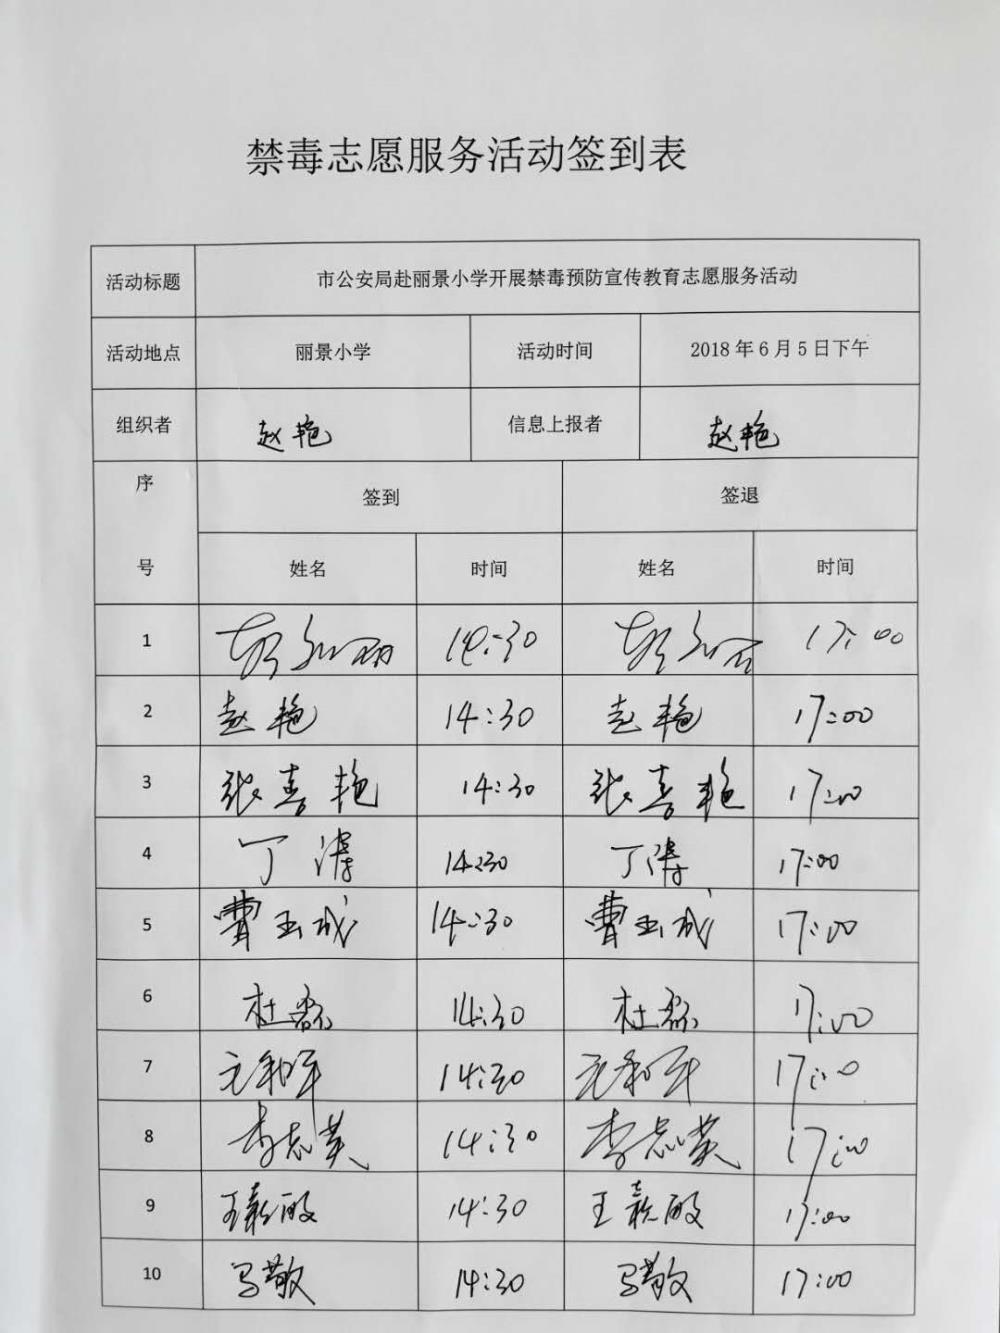 禁毒志愿服务活动签到表
活动标题 市公安局赴丽景小学开展禁毒预防宣传教育志愿服务活动
活动地点 丽景小学 活动时间 2018年6月5日下午
组织者 赵艳 信息上报者 赵艳
序号 签到 签退
姓名 时间 姓名 时间
1 14:30 17:00
2 赵艳 14:30 赵艳 17:00
3 张喜艳 14:30 张喜艳 17:00
4 丁涛 14:30 丁涛 17:00
5 曹玉成 14:30 曹玉成 17:00
6 杜磊 14:30 杜磊 17:00
7 元和平 14:30 元和平 17:00
8 李志英 14:30 李志英 17:00
9 14:30 17:00
10 马敬 14:30 马敬 17:00